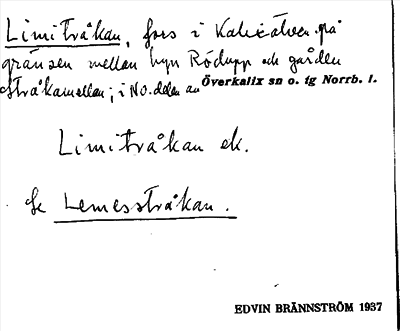 Limitråkan, fors i Kalixälven på
gränsen mellan byn Rödupp och gården
Stråkamellan; i NO. delen av Överkalix sn o. tg Norrb. l.
Limitråkan ek.
Se Lemesstråkan.
EDVIN BRÄNNSTRÖM 1937